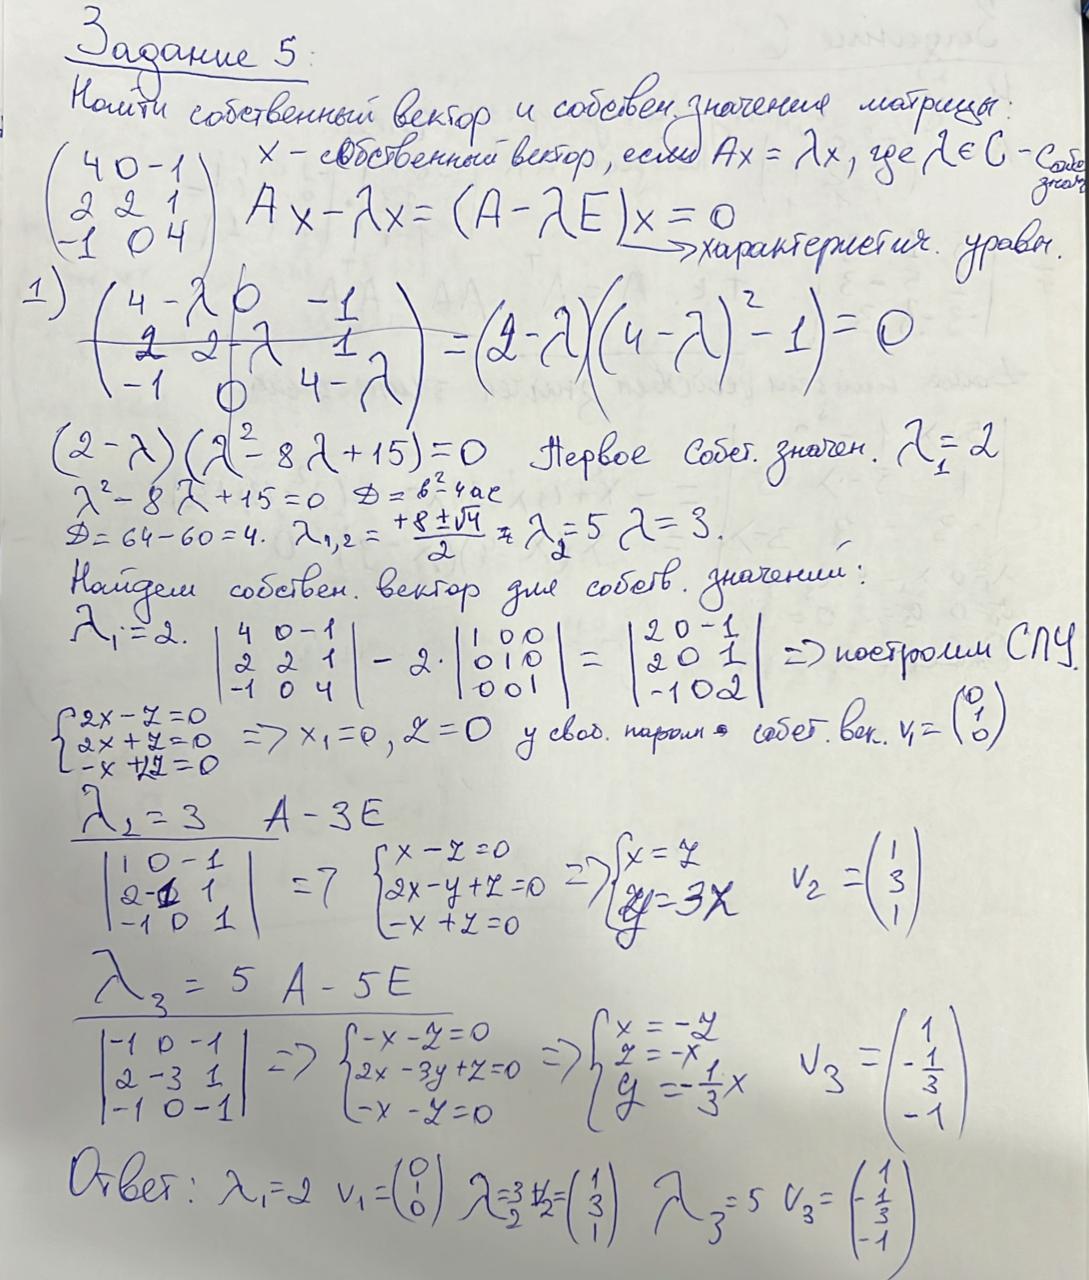 Задание 5:
Найти собственный вектор и собствен. значения матрицы:
(4 0 -1
2 2 1
-1 0 4) x - собственный вектор, если Ax = λx, где λ ∈ C - собс знач
Ax - λx = (A - λE)x = 0
→ характеристич. уравн.
1) (4-λ 0 -1
2 2-λ 1
-1 0 4-λ) = (2-λ)((4-λ)² - 1) = 0
(2-λ)(λ² - 8λ + 15) = 0 Первое собст. значен. λ₁ = 2
λ² - 8λ + 15 = 0 D = b² - 4ac
D = 64 - 60 = 4. λ₁,₂ = (+8 ± √4)/2 = λ₂ = 5 λ = 3.
Найдем собствен. вектор для собств. значений:
λ₁ = 2. |4 0 -1
2 2 1
-1 0 4| - 2·|1 0 0
0 1 0
0 0 1| = |2 0 -1
2 0 1
-1 0 2| => построим СЛУ
{2x - z = 0
2x + z = 0
-x + 2z = 0 => x₁ = 0, z = 0 y своб. парам собст. век. v₁ = (0
1
0)
λ₂ = 3 A - 3E
|1 0 -1
2 -1 1
-1 0 1| => {x - z = 0
2x - y + z = 0
-x + z = 0 => {x = z
y = 3x v₂ = (1
3
1)
λ₃ = 5 A - 5E
|-1 0 -1
2 -3 1
-1 0 -1| => {-x - z = 0
2x - 3y + z = 0
-x - z = 0 => {x = -z
z = -x
y = -1/3 x v₃ = (1
-1/3
-1)
Ответ: λ₁ = 2 v₁ = (0
1
0) λ₂ = 3 v₂ = (1
3
1) λ₃ = 5 v₃ = (1
-1/3
-1)